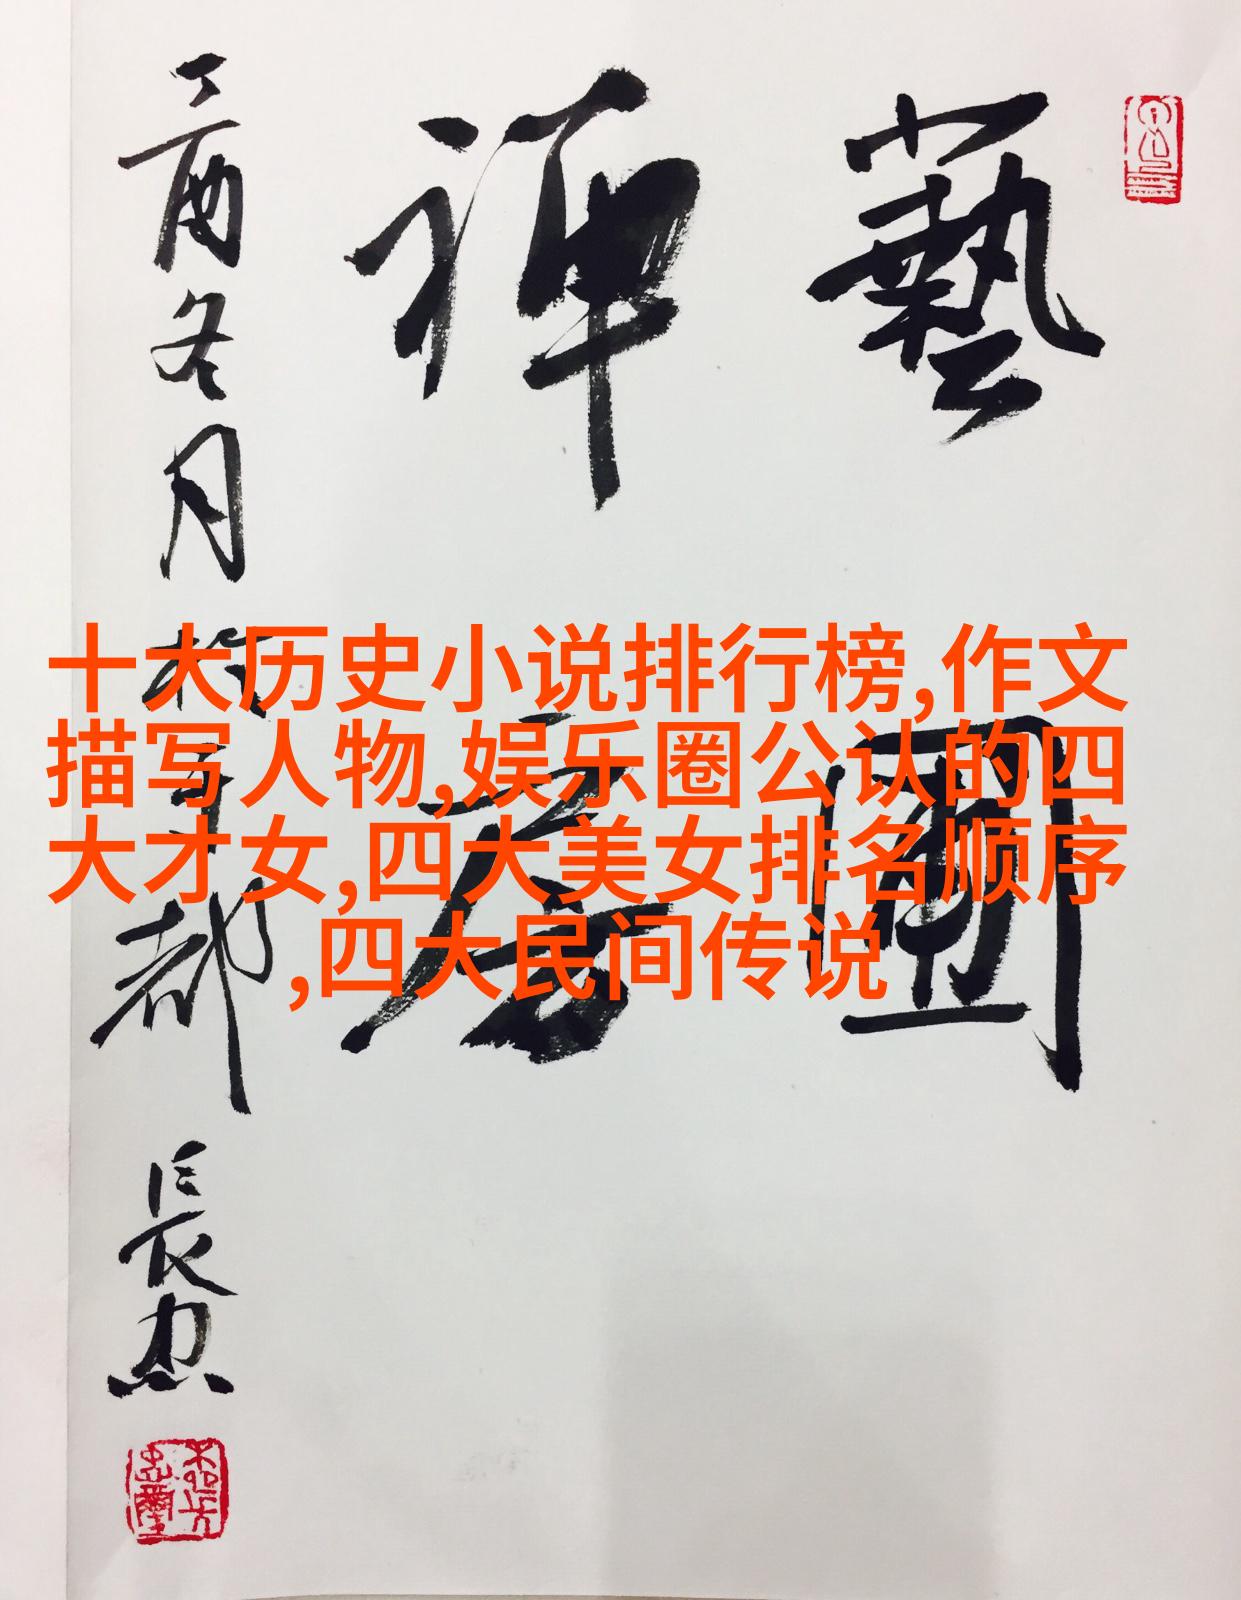 藝圃
禅房
丁酉冬月於
都
長忠
十大历史小说排行榜,作文
描写人物,娱乐圈公认的四
大才女,四大美女排名顺序
,四大民间传说